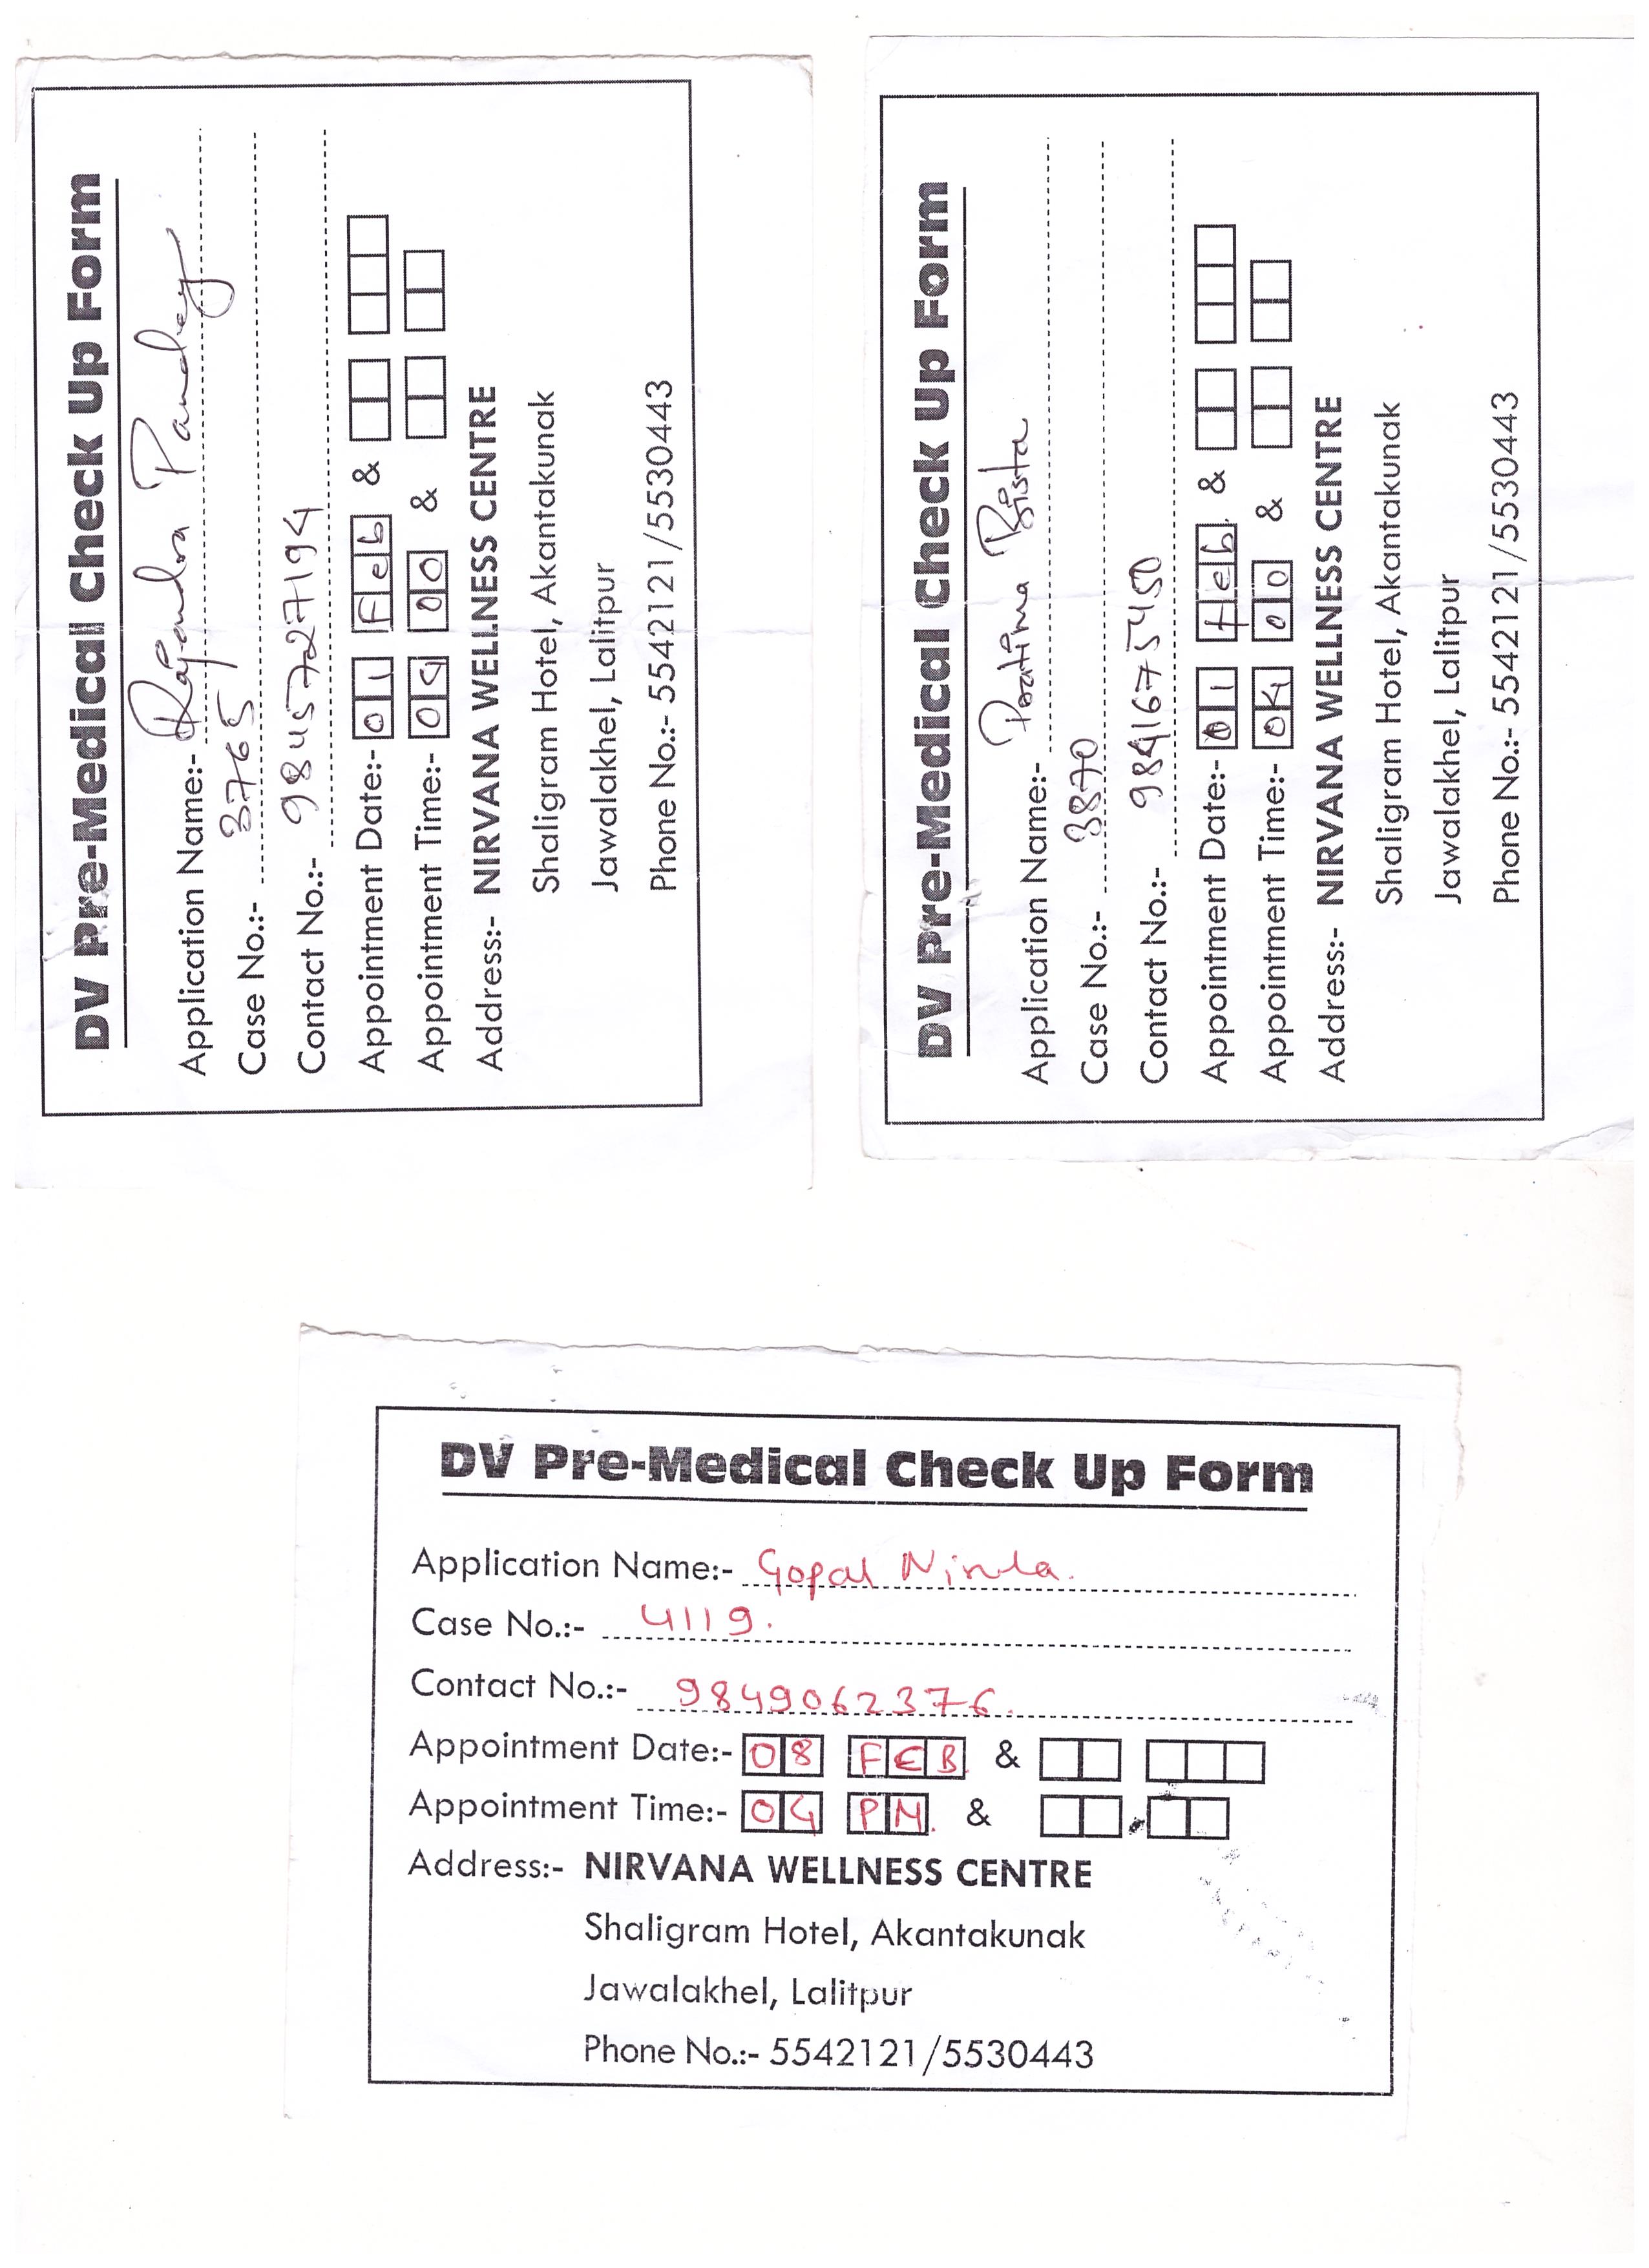 DV Pre-Medical Check Up Form
Application Name:- Rajendra Pandey
Case No.:- 3765
Contact No.:- 9845727194
Appointment Date:- 01 Feb &
Appointment Time:- 04 00 &
Address:- NIRVANA WELLNESS CENTRE
Shaligram Hotel, Akantakunak
Jawalakhel, Lalitpur
Phone No.:- 5542121/5530443
DV Pre-Medical Check Up Form
Application Name:- Pratima Bista
Case No.:- 3870
Contact No.:- 9841675450
Appointment Date:- 01 feb &
Appointment Time:- 04 00 &
Address:- NIRVANA WELLNESS CENTRE
Shaligram Hotel, Akantakunak
Jawalakhel, Lalitpur
Phone No.:- 5542121/5530443
DV Pre-Medical Check Up Form
Application Name:- Gopal
Case No.:- 4119.
Contact No.:- 9849062376.
Appointment Date:- 08 FEB &
Appointment Time:- 04 PM. &
Address:- NIRVANA WELLNESS CENTRE
Shaligram Hotel, Akantakunak
Jawalakhel, Lalitpur
Phone No.:- 5542121/5530443